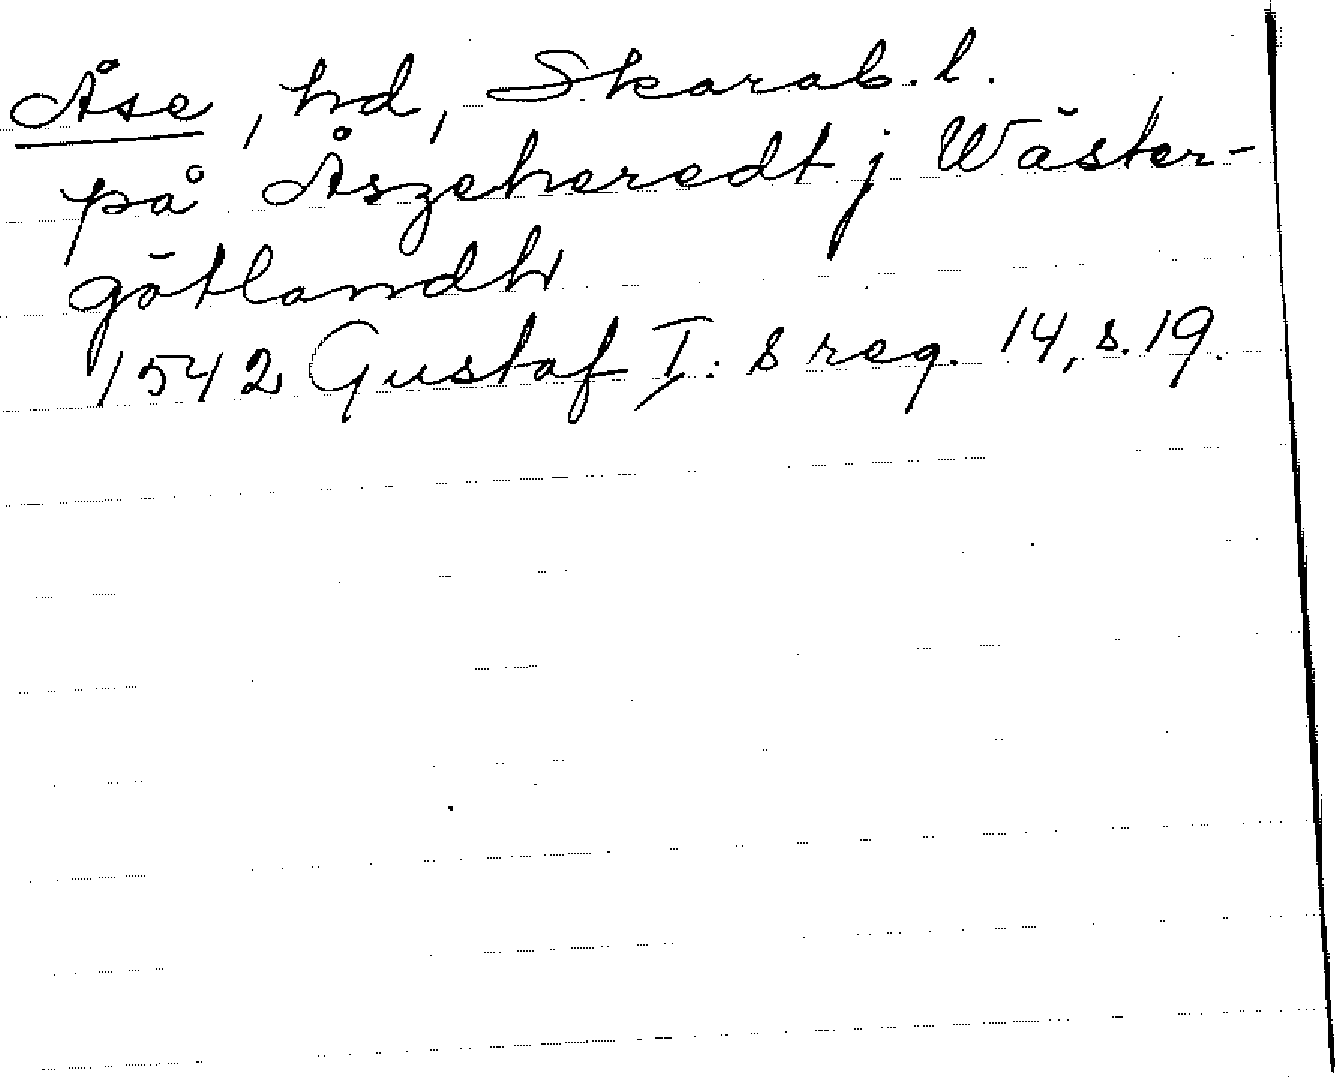 Åse, hd, Skarab. l.
på Åszeheredt j Wäster-
götlandh
1542 Gustaf I:s reg. 14, s. 19.